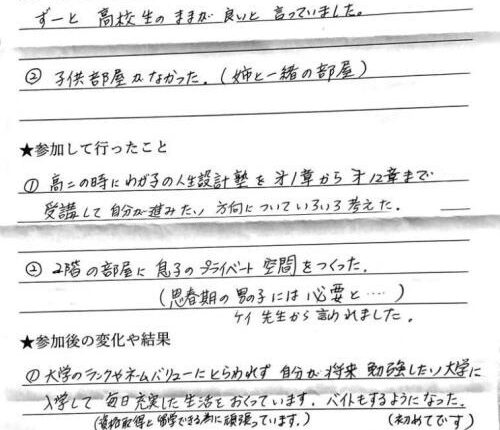 ずーと 高校生のままが良いと言っていました。
② 子供部屋がなかった。(姉と一緒の部屋)
★参加して行ったこと
① 高二の時にわが子の人生設計塾を才1章から才12章まで
受講して自分が進みたい方向についていろいろ考えた。
② 2階の部屋に息子のプライベート空間をつくった。
(思春期の男の子には必要と‥‥)
ケイ先生から言われました。
★参加後の変化や結果
① 大学のランクやネームバリューにとらわれず自分が将来勉強したい大学に
入学して毎日充実した生活をおくっています。バイトもするようになった。
(資格取得と留学できる為に頑張っています。) (初めてです)